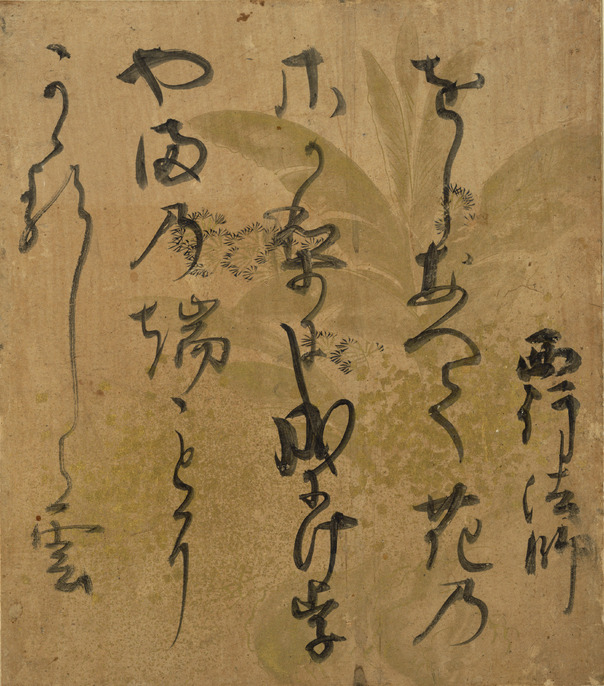 西行法師
をしなへて花乃
さか梨に成にけ李
や満乃端ことに
かゝるしら雲